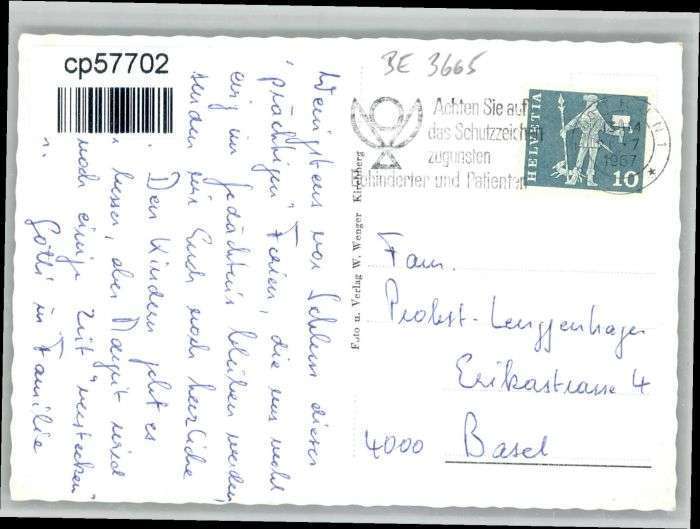 cp57702
BE 3665
Achten Sie auf
das Schutzzeichen
zugunsten
Behinderter und Patienten
HELVETIA
10
1967
Foto u. Verlag W. Wenger Kirchberg
Fam.
Probst-Lenggenhager
Erikastrasse 4
4000 Basel
Wenigstens vor Schluss dieser
"prächtigen" Ferien, die uns wohl
ewig im Gedächtnis bleiben werden
senden wir Euch noch herzliche
Den Kindern geht es
besser, aber Margrit wird
noch einige Zeit "verstecken"
Götti u. Familie